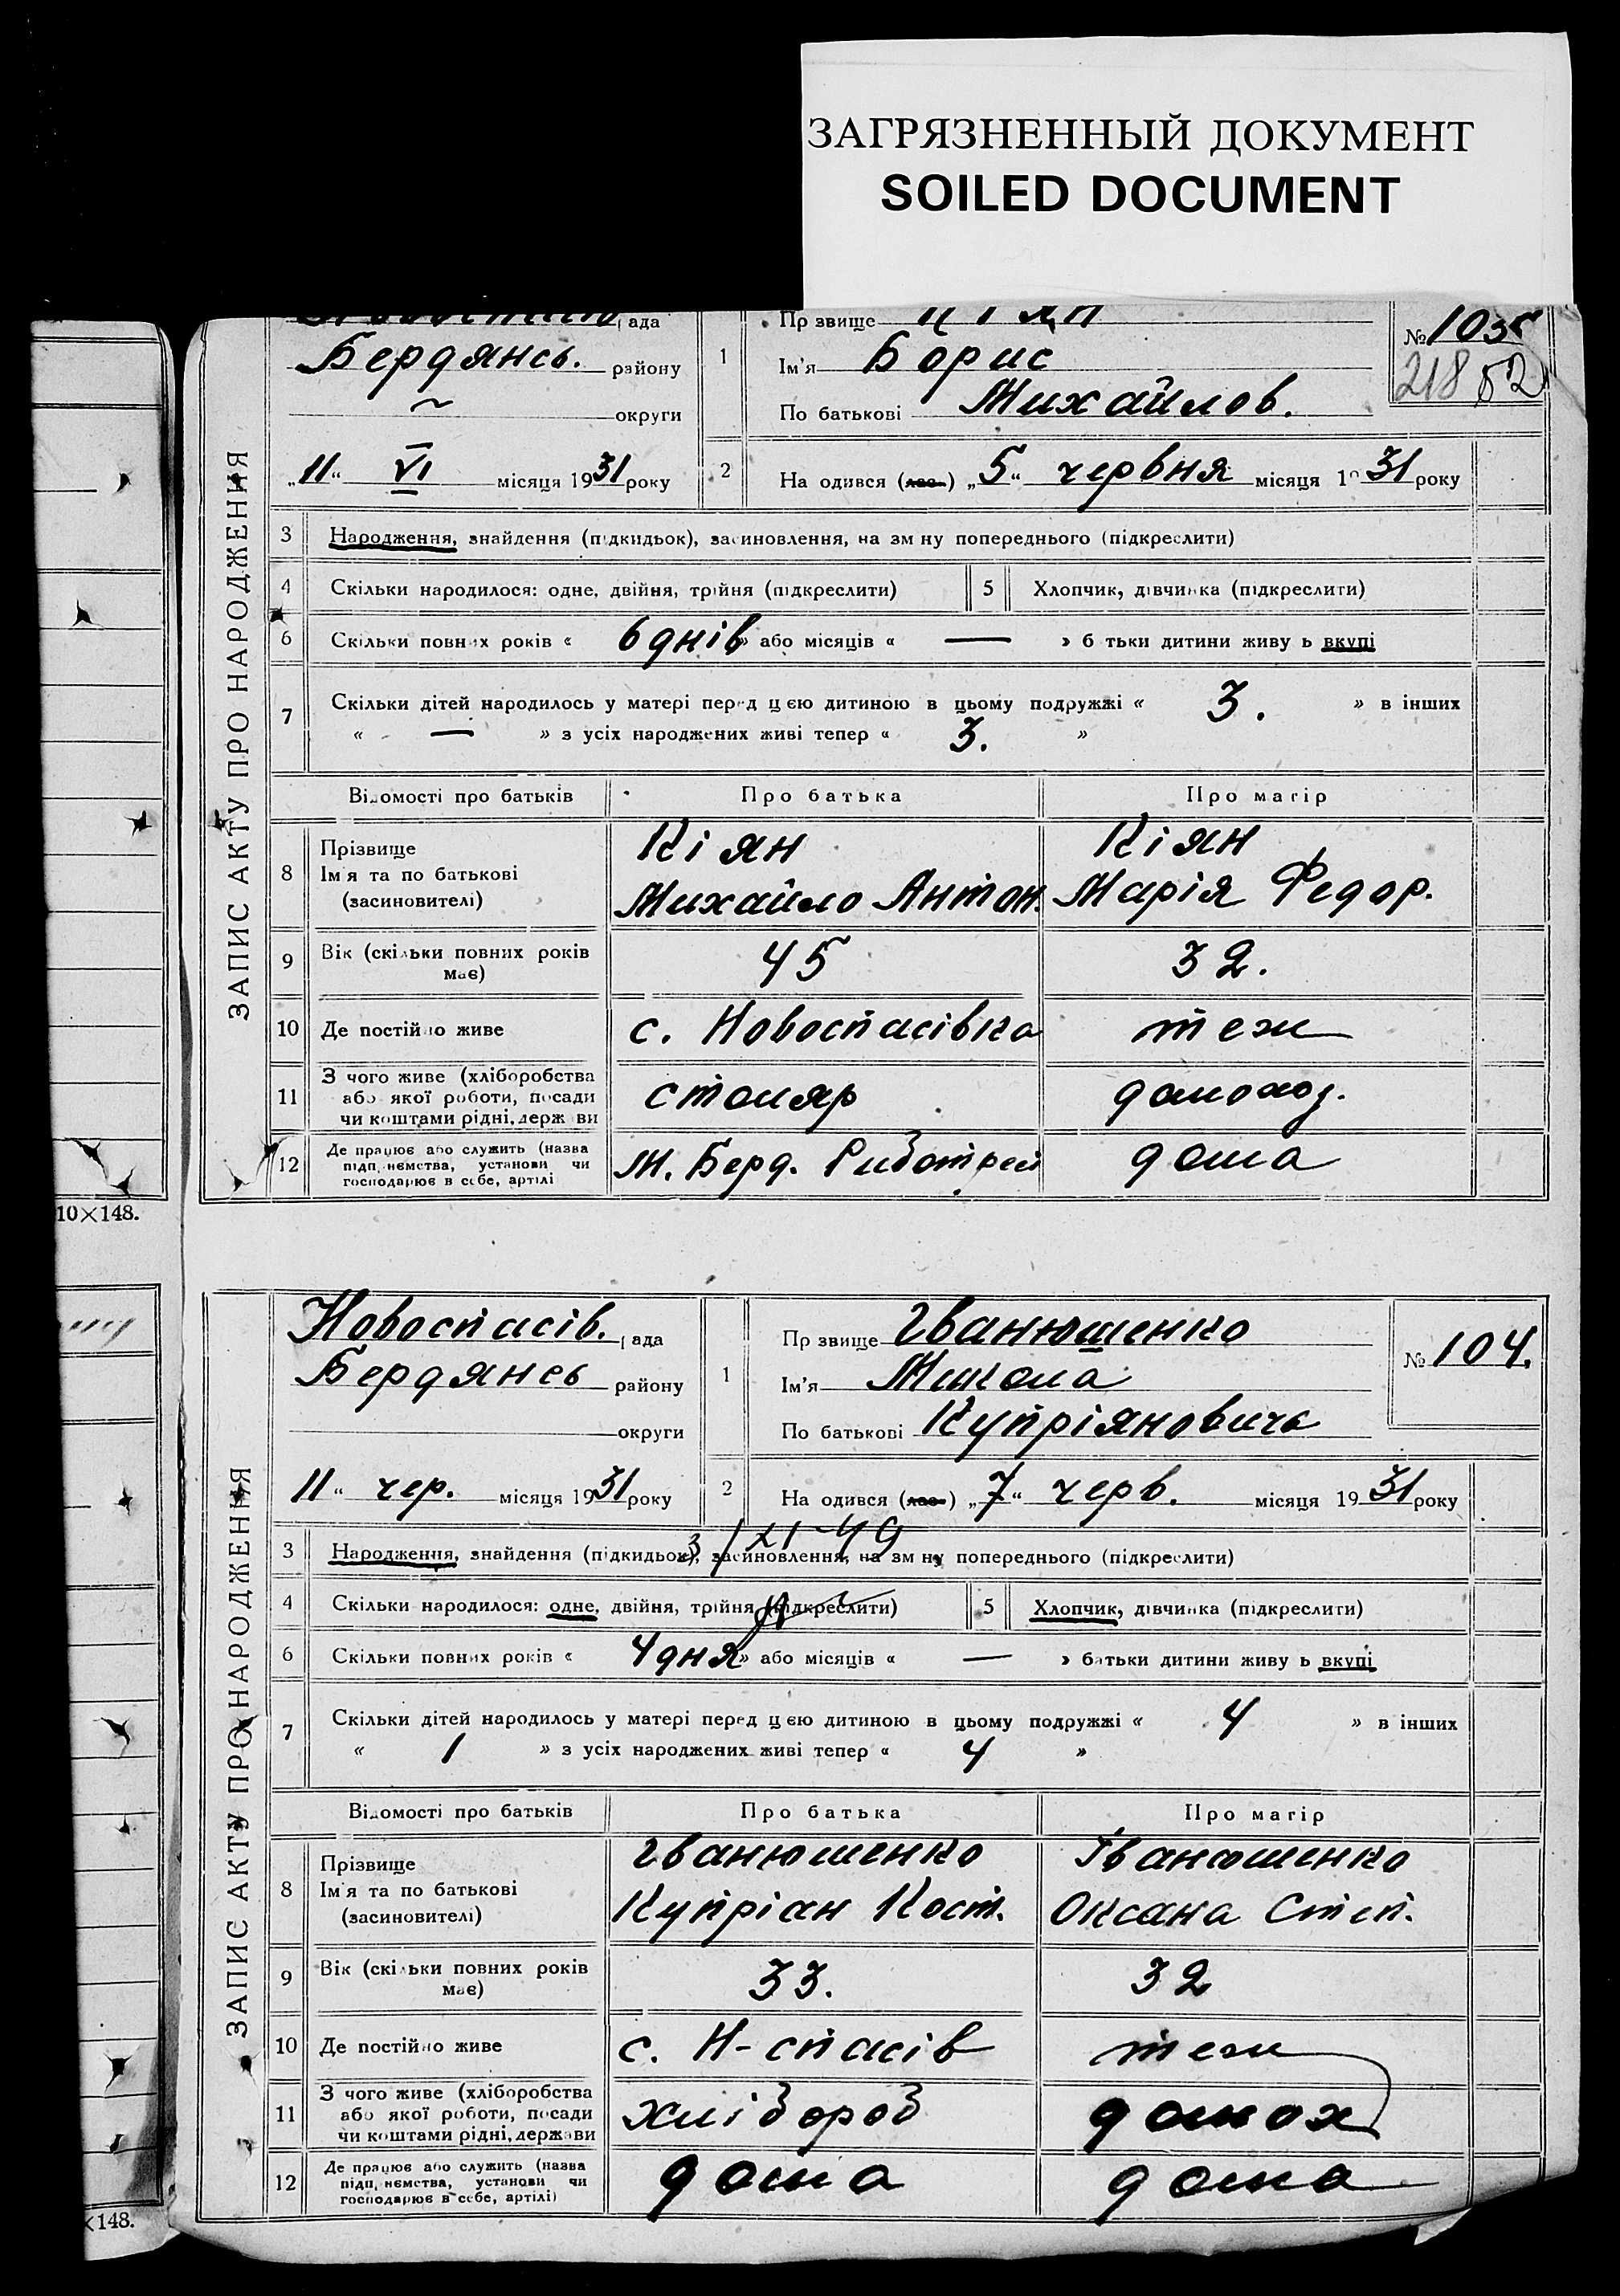 ЗАГРЯЗНЕННЫЙ ДОКУМЕНТ
SOILED DOCUMENT
ЗАПИС АКТУ ПРО НАРОДЖЕННЯ
рада
Бердянсь. району
округи
„11“ VI місяця 1931 року
1 Прізвище Кіян
Ім'я Борис
По батькові Михайлов.
№ 103
218 52
2 На одився (лас.) „5“ червня місяця 1931 року
3 Народження, знайдення (підкидьок), засиновлення, на зм ну попереднього (підкреслити)
4 Скільки народилося: одне, двійня, трійня (підкреслити) 5 Хлопчик, дівчинка (підкреслити)
6 Скільки повних років « 6 днів » або місяців « — » б тьки дитини живу ь вкупі
7 Скільки дітей народилось у матері перед цією дитиною в цьому подружжі « 3. » в інших
« — » з усіх народжених живі тепер « 3. »
Відомості про батьків Про батька Про матір
8 Прізвище Кіян Кіян
Ім'я та по батькові Михайло Антон. Марія Федор.
(засиновителі)
9 Вік (скільки повних років має) 45 32.
10 Де постійно живе с. Новоспасівка теж
11 З чого живе (хліборобства
або якої роботи, посади столяр домохоз.
чи коштами рідні, держ ви
12 Де працює або служить (назва
підп, ємства, установи чи М. Берд. дома
господарює в себе, артілі
10×148.
ЗАПИС АКТУ ПРО НАРОДЖЕННЯ
Новоспасів. рада
Бердянсь району
округи
11“ чер. місяця 1931 року
1 Пр звище Іванюшенко
Ім'я Микола
По батькові Купріяновича
№ 104.
2 На одився (лас.) „7“ черв. місяця 1931 року
3 Народження, знайдення (підкидьок), засиновлення, на зм ну попереднього (підкреслити)
4 Скільки народилося: одне, двійня, трійня (підкреслити) 5 Хлопчик, дівчинка (підкреслити)
6 Скільки повних років « 4 дня » або місяців « — » батьки дитини живу ь вкупі
7 Скільки дітей народилось у матері перед цією дитиною в цьому подружжі « 4 » в інших
« 1 » з усіх народжених живі тепер « 4 »
Відомості про батьків Про батька Про матір
8 Прізвище Іванюшенко Іванюшенко
Ім'я та по батькові Купріан Кост. Оксана Степ.
(засиновителі)
9 Вік (скільки повних років має) 33. 32
10 Де постійно живе с. Н-спасів теж
11 З чого живе (хліборобства
або якої роботи, посади хлібороб домох
чи коштами рідні, держави
12 Де працює або служить (назва
підп, ємства, установи чи дома дома
господарює в себе, артілі)
×148.